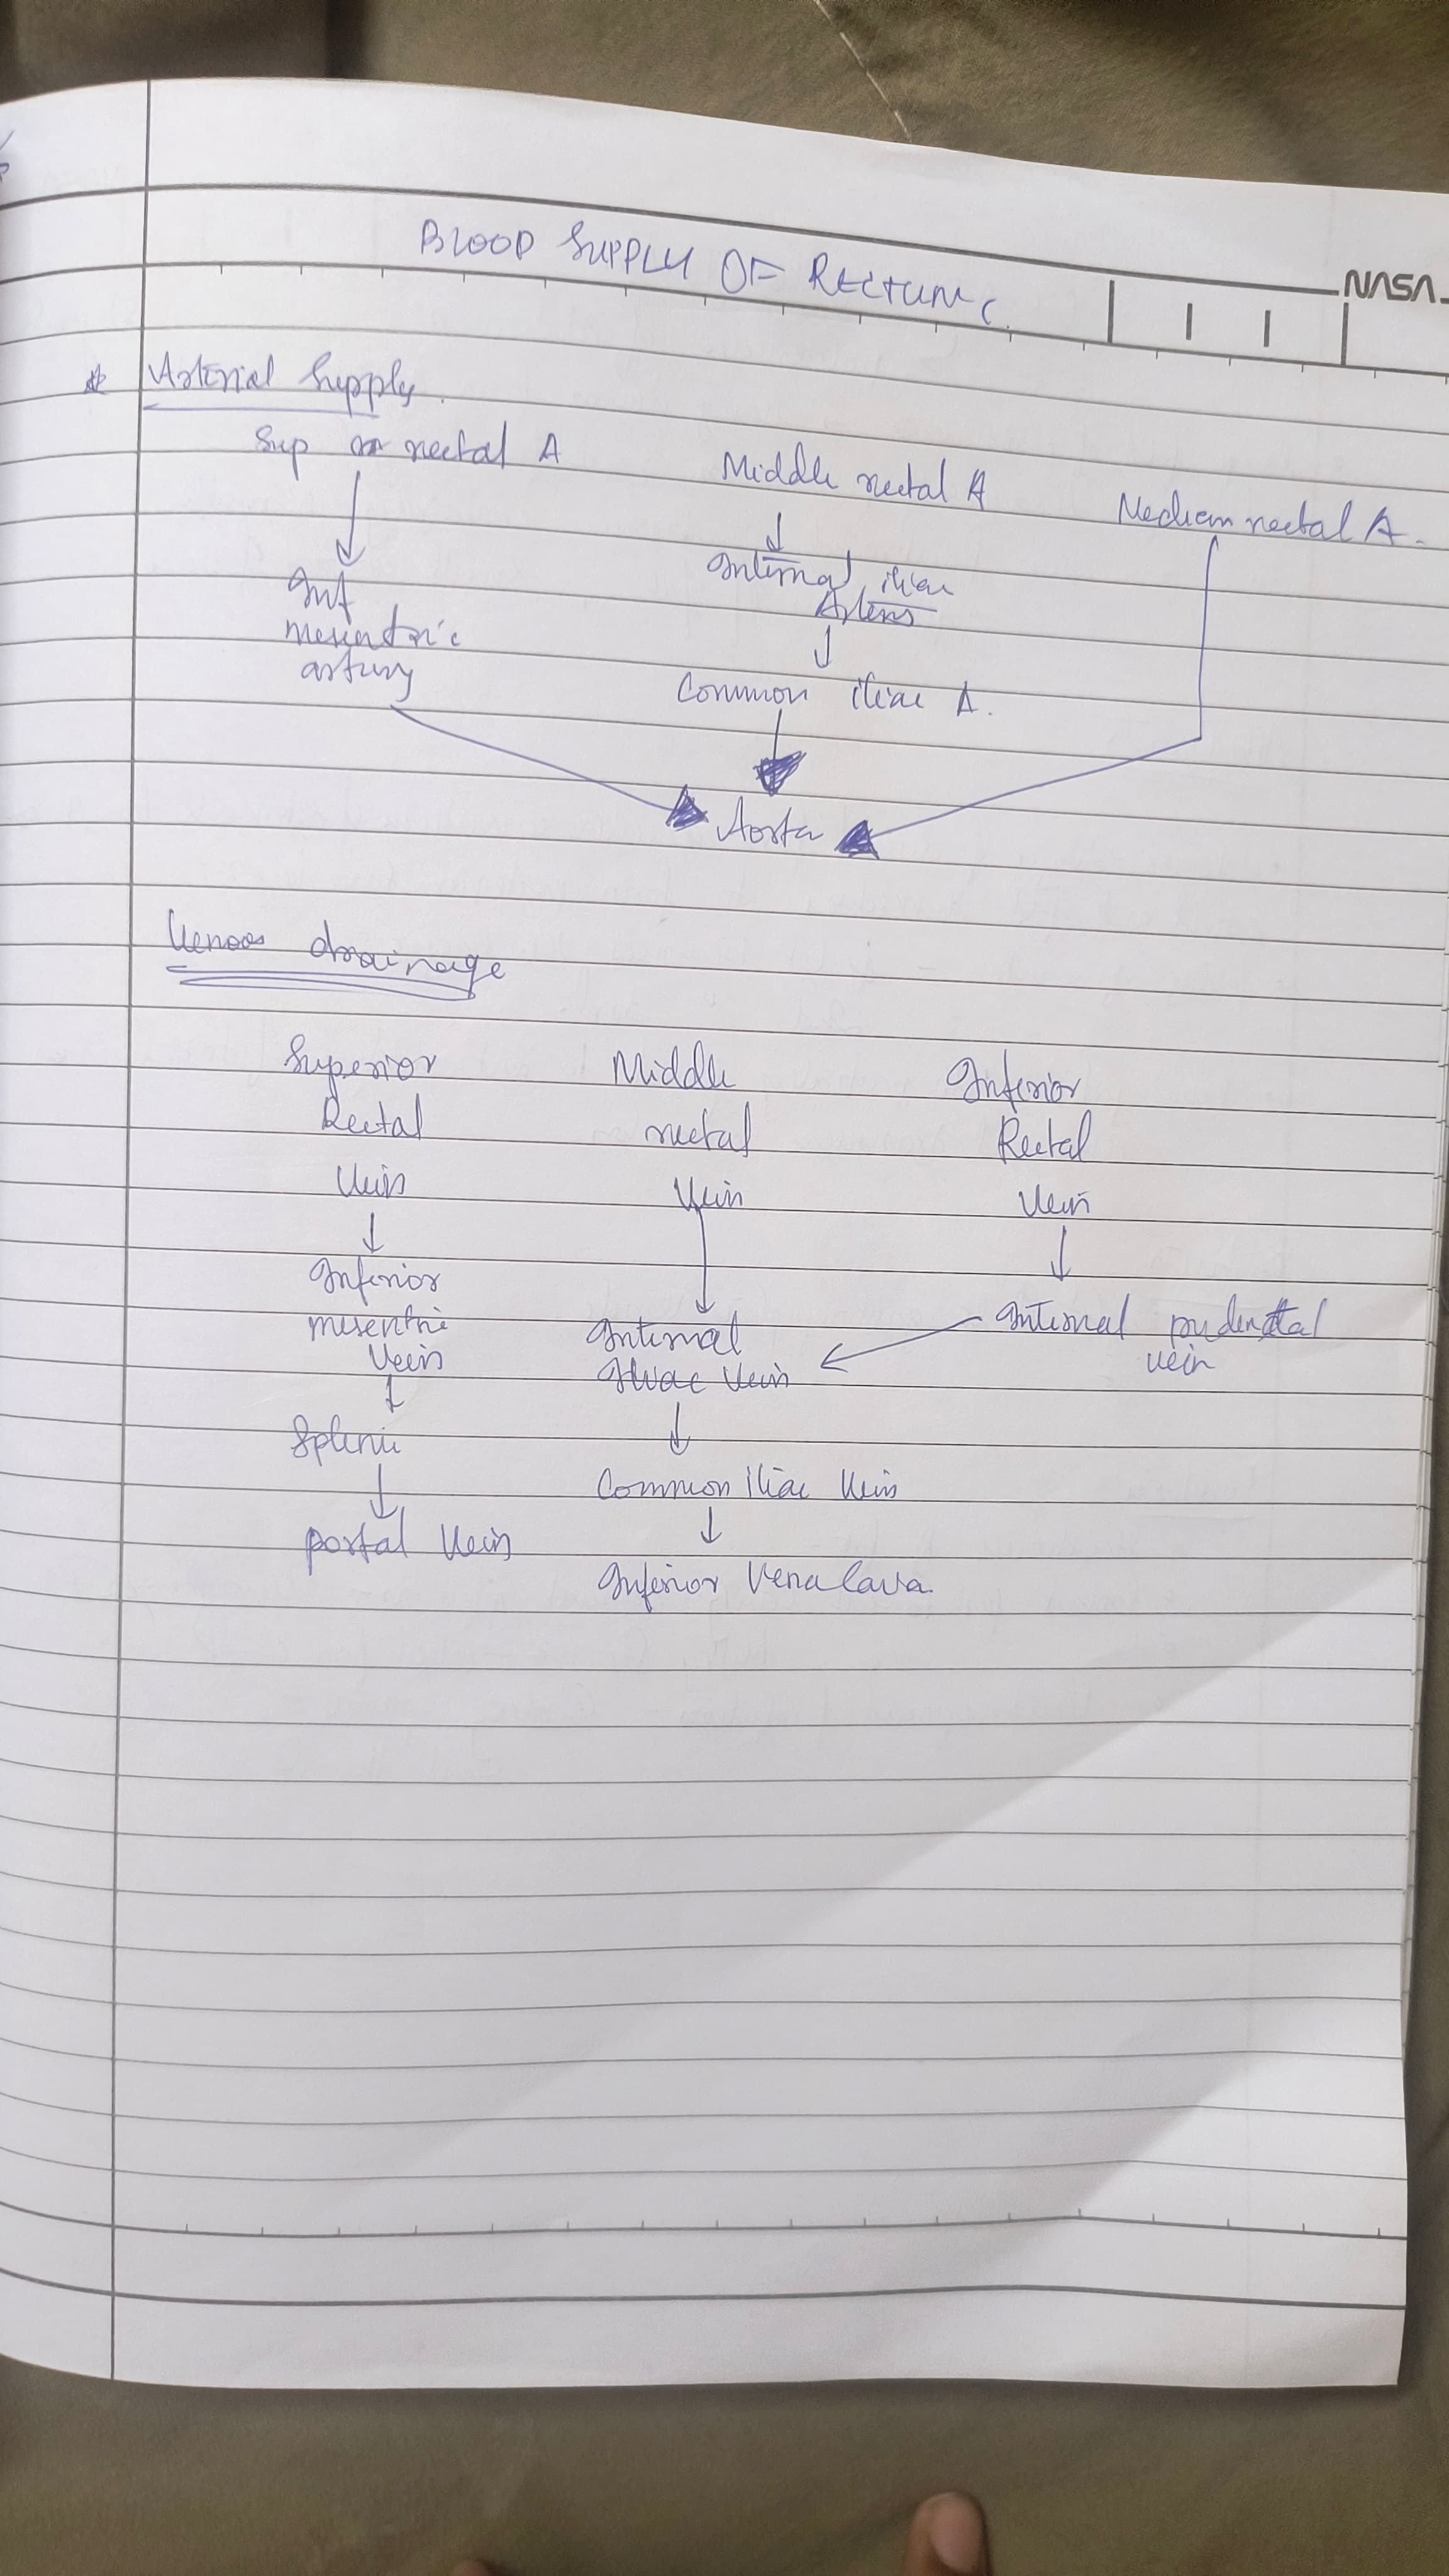 BLOOD SUPPLY OF RECTUM
NASA
Arterial Supply
Sup rectal A
Middle rectal A
Median rectal A.
Inf
mesentric
artury
Internal iliac
Common iliac A.
Aorta
Venous drainage
Superior
Rectal
Vein
Middle
rectal
Vein
Inferior
Rectal
Vein
Inferior
mesentric
Vein
Internal
Vein
Internal pudental
vein
Splenic
Common iliac Vein
portal Vein
Inferior Vena Cava.